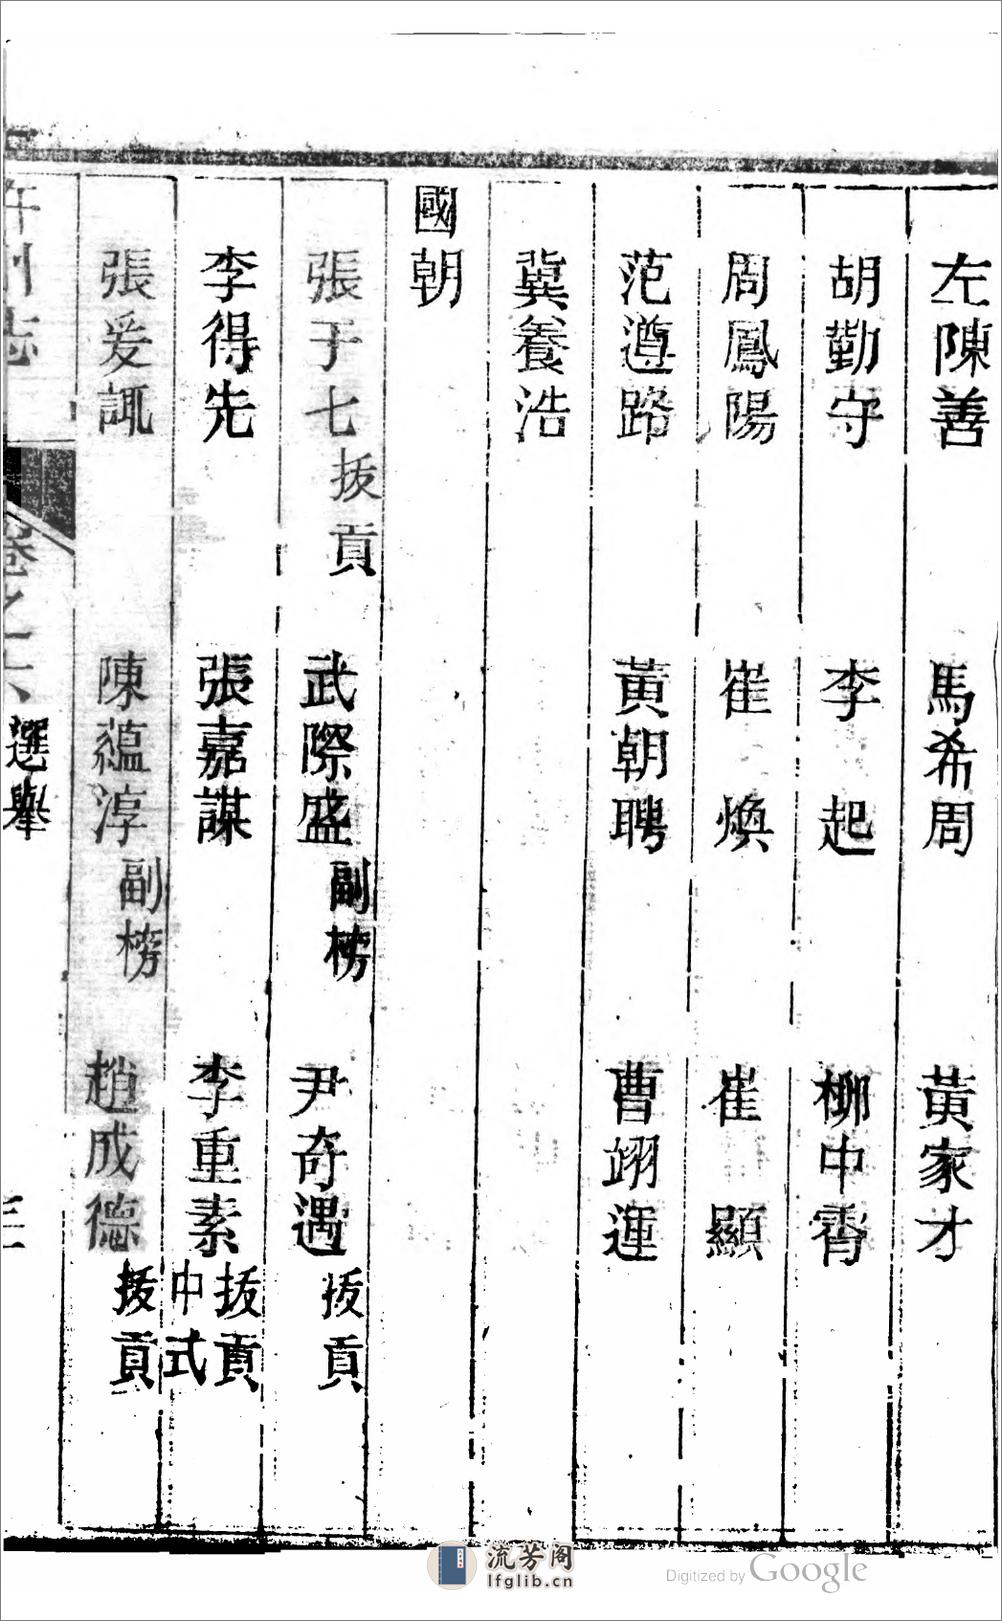 左陳善　馬希周　黃家才
胡勤守　李起　柳中霄
周鳳陽　崔煥　崔顯
范遵路　黃朝聘　曹翊運
冀養浩
國朝
張于七拔貢　武際盛副榜　尹奇遇拔貢
李得先　張嘉謀　李重素拔貢中式
張爰諏　陳蘊淳副榜　趙成德拔貢
許州志　卷之十六　選舉　三
流芳阁
lfglib.cn
Digitized by Google